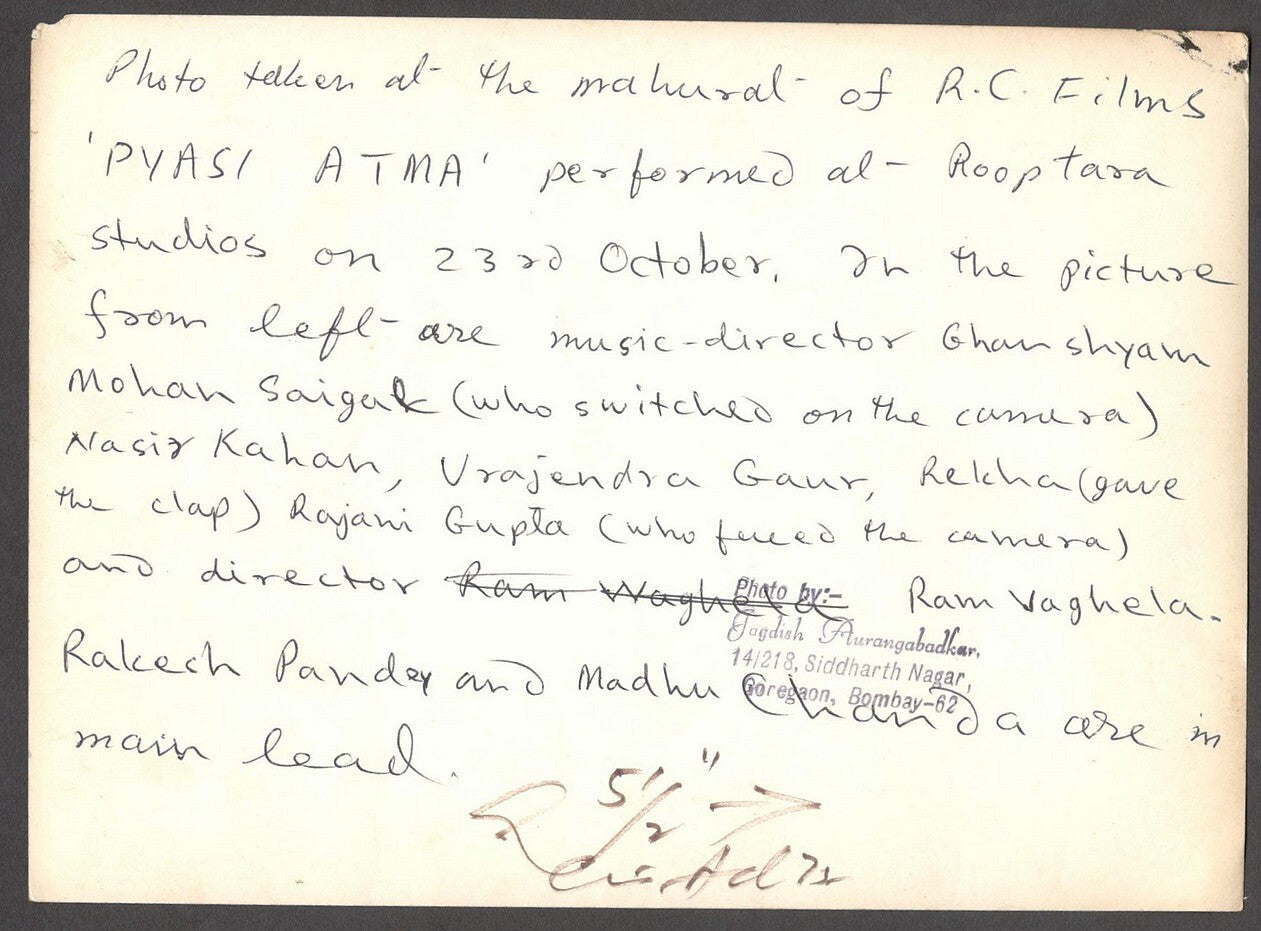 Photo taken at the mahurat of R.C. Films
'PYASI ATMA' performed at Rooptara
studios on 23rd October. In the picture
from left are music-director Ghanshyam
Mohan Saigal (who switched on the camera)
Nasir Kahan, Vrajendra Gaur, Rekha (gave
the clap) Rajani Gupta (who faced the camera)
and director Ram Waghela Ram Vaghela.
Photo by:-
Jagdish Aurangabadkar,
14/218, Siddharth Nagar,
Goregaon, Bombay-62
Rakesh Pandey and Madhu Chanda are in
main lead.
5 1/2"